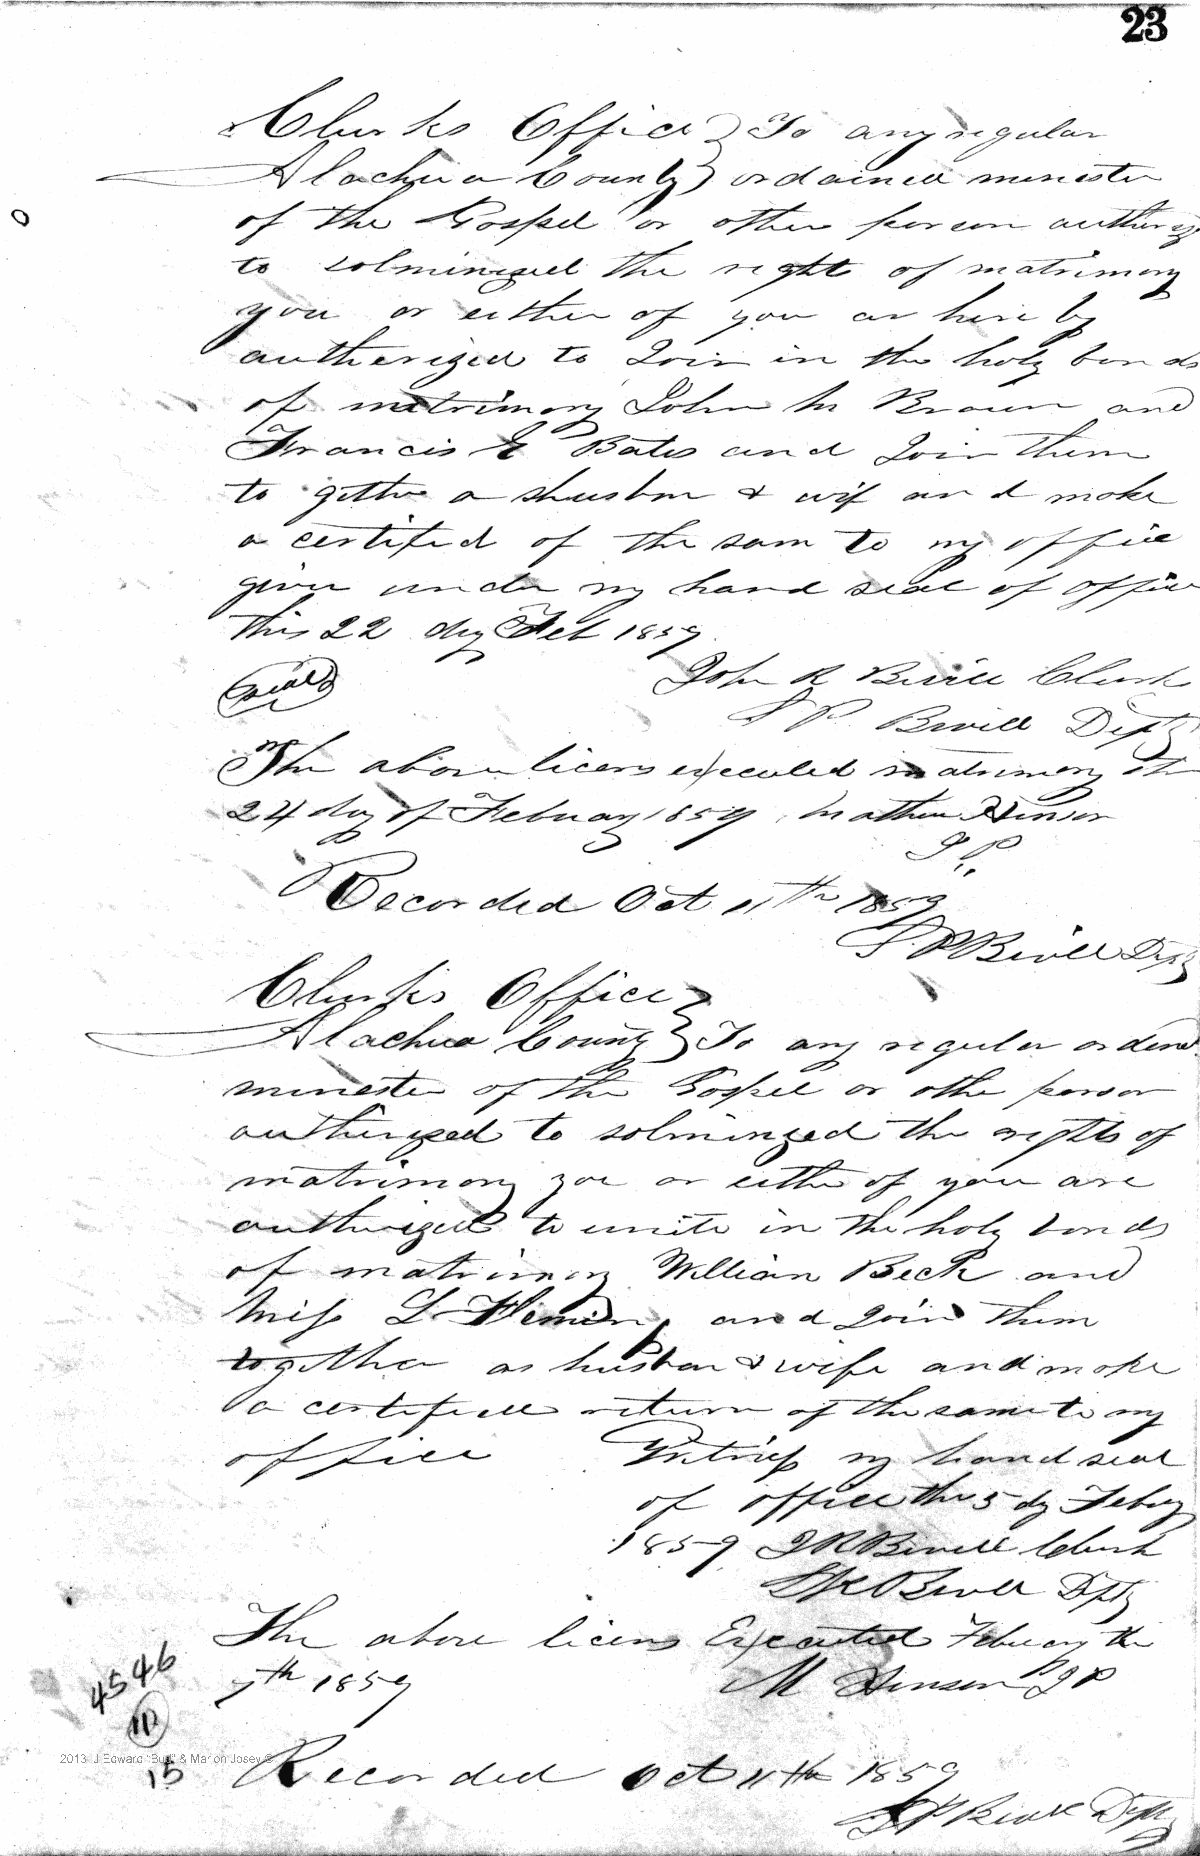 23
Clurks Office } To any regular
Alachua County } ordained minester
of the Gospel or other person authoriz
to solminized the right of matrimony
you or either of you ar here by
autherized to Join in the holy bonds
of matrimony John M Brown and
Francis E Bates and Join them
to gether a shusban & wif and make
a certified of the sam to my office
given under my hand seal of office
this 22 dy Feb 1859
Seal
John R Bevill Clurk
S P. Bevill Depty
The above licens executed matrimony the
24 day of Febuary 1859 Mathew Hinson
J P.
Recorded Oct 11th 1859
S. P Bevill Depty
Clurks Office }
Alachua County } To any regular ordend
minester of the Gospel or othe person
authirized to solminized the rights of
matrimony you or eithe of you are
authirized to unite in the holy bonds
of matrimony William Beck and
Miss L and Join them
together as husban & wife and make
a certified return of the same to my
office Witness my hand seal
of office this 5 dy Febuy
1859 J R Bevill Clurk
Bevill Dpty
The above licens Executed Febuary the
7th 1859 M Hinson J P
4546
10
15
2013 J Edward "Bud" & Marion Josey ©
Recorded Oct 11th 1859
S P Bevill Depty